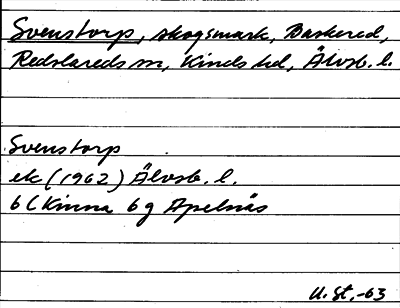 Svenstorp, skogsmark, Baskered,
Redslareds sn, Kinds hd, Älvsb. l.
Svenstorp
ek (1962) Älvsb. l.
6 C Kinna 6 g Apelnäs
U. St, -63